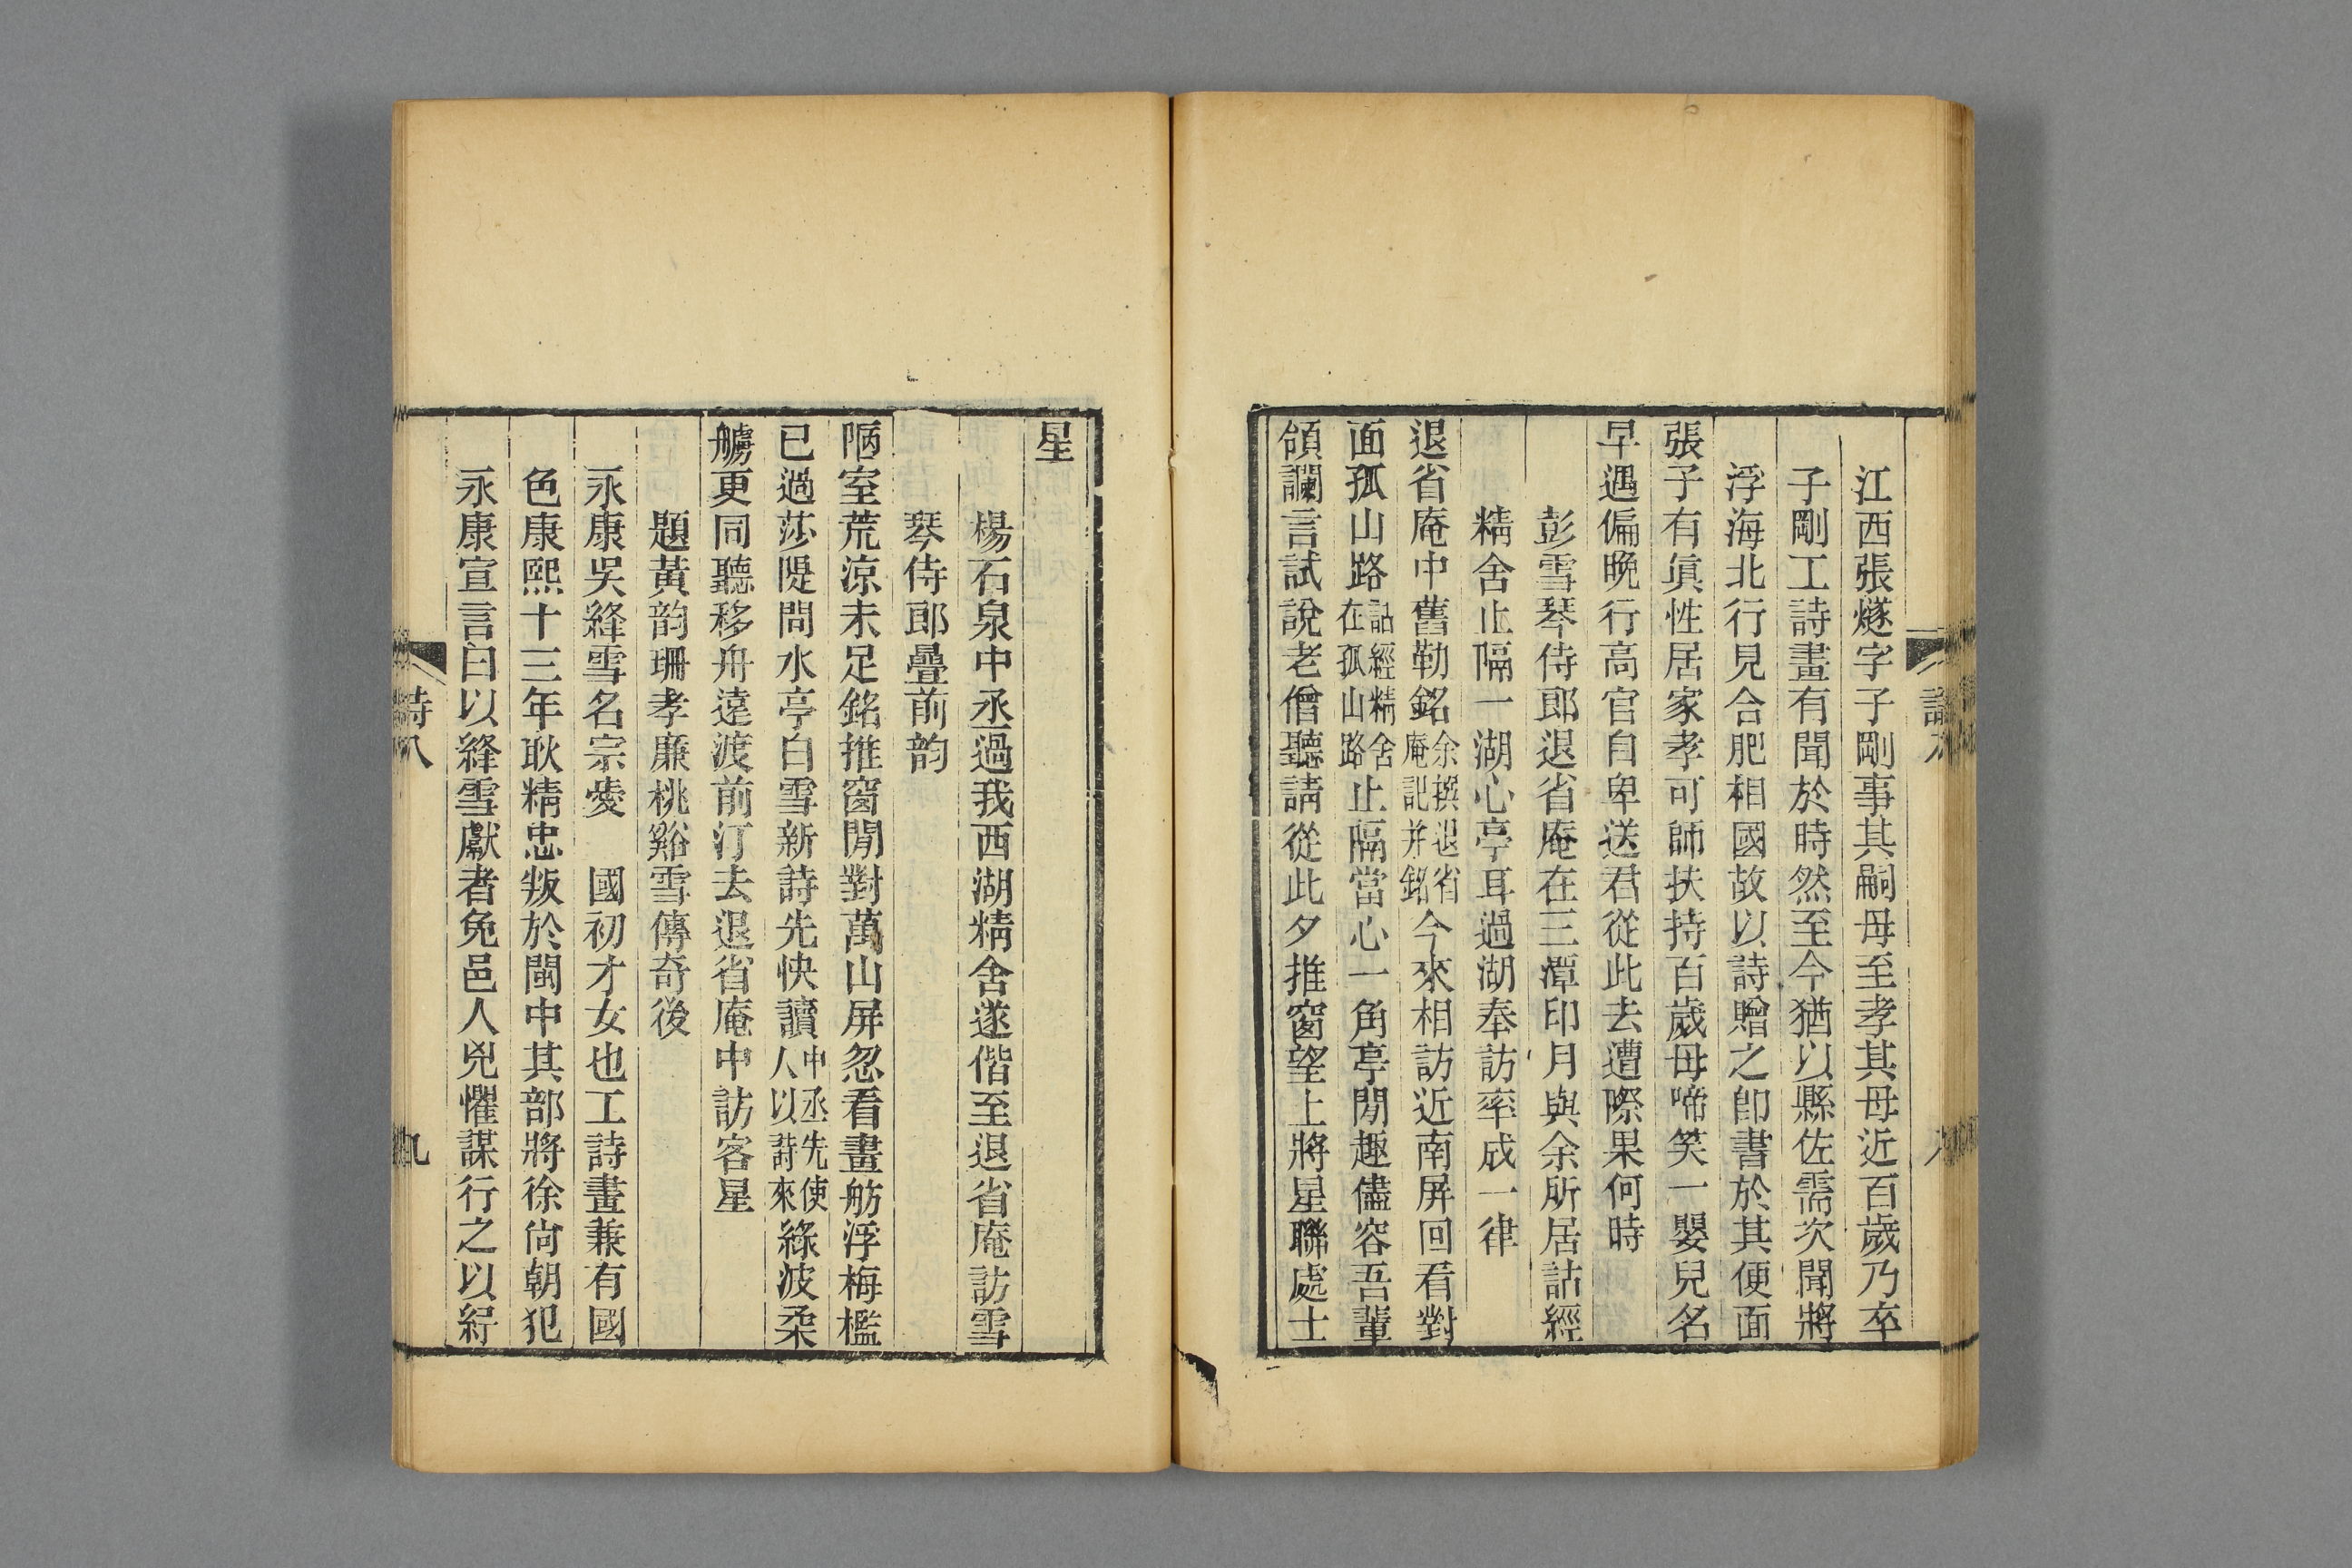 江西張燧字子剛事其嗣母至孝其母近百歲乃卒
子剛工詩畫有聞於時然至今猶以縣佐需次聞將
浮海北行見合肥相國故以詩贈之卽書於其便面
張子有眞性居家孝可師扶持百歲母啼笑一嬰兒名
早遇偏晚行高官自卑送君從此去遭際果何時
彭雪琴侍郎退省庵在三潭印月與余所居詁經
精舍止隔一湖心亭耳過湖奉訪率成一律
退省庵中舊勒銘余撰退省庵記并銘今來相訪近南屏回看對
面孤山路詁經精舍在孤山路止隔當心一角亭閒趣儘容吾輩
領讕言試說老僧聽請從此夕推窗望上將星聯處士
星
楊石泉中丞過我西湖精舍遂偕至退省庵訪雪
琴侍郎疊前韵
陋室荒涼未足銘推窗閒對萬山屏忽看畫舫浮梅檻
已過莎隄問水亭白雪新詩先快讀中丞先使人以詩來綠波柔
艣更同聽移舟遠渡前汀去退省庵中訪客星
題黃韵珊孝廉桃谿雪傳奇後
永康吳絳雪名宗愛 國初才女也工詩畫兼有國
色康熙十三年耿精忠叛於閩中其部將徐尙朝犯
永康宣言曰以絳雪獻者免邑人兇懼謀行之以紓
詩八
九